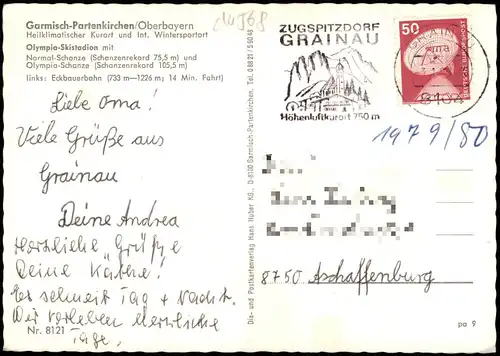 Garmisch-Partenkirchen/Oberbayern
Heilklimatischer Kurort und Int. Wintersportort
Olympia-Skistadion mit
Normal-Schanze (Schanzenrekord 75,5 m) und
Olympia-Schanze (Schanzenrekord 105,5 m)
links: Eckbauerbahn (733 m—1226 m; 14 Min. Fahrt)
Liebe Oma!
Viele Grüße aus
Grainau
Deine Andrea
Herzliche Grüße
Deine Käthe!
Es schneit Tag + Nacht.
Wir verleben herrliche
Tage.
Nr. 8121
Dia- und Postkartenverlag Hans Huber KG., D-8100 Garmisch-Partenkirchen, Tel. 0 88 21 / 5 50 48
ZUGSPITZDORF
GRAINAU
Höhenluftkurort 750 m
50
8104
1979/80
8750 Aschaffenburg
pa 9